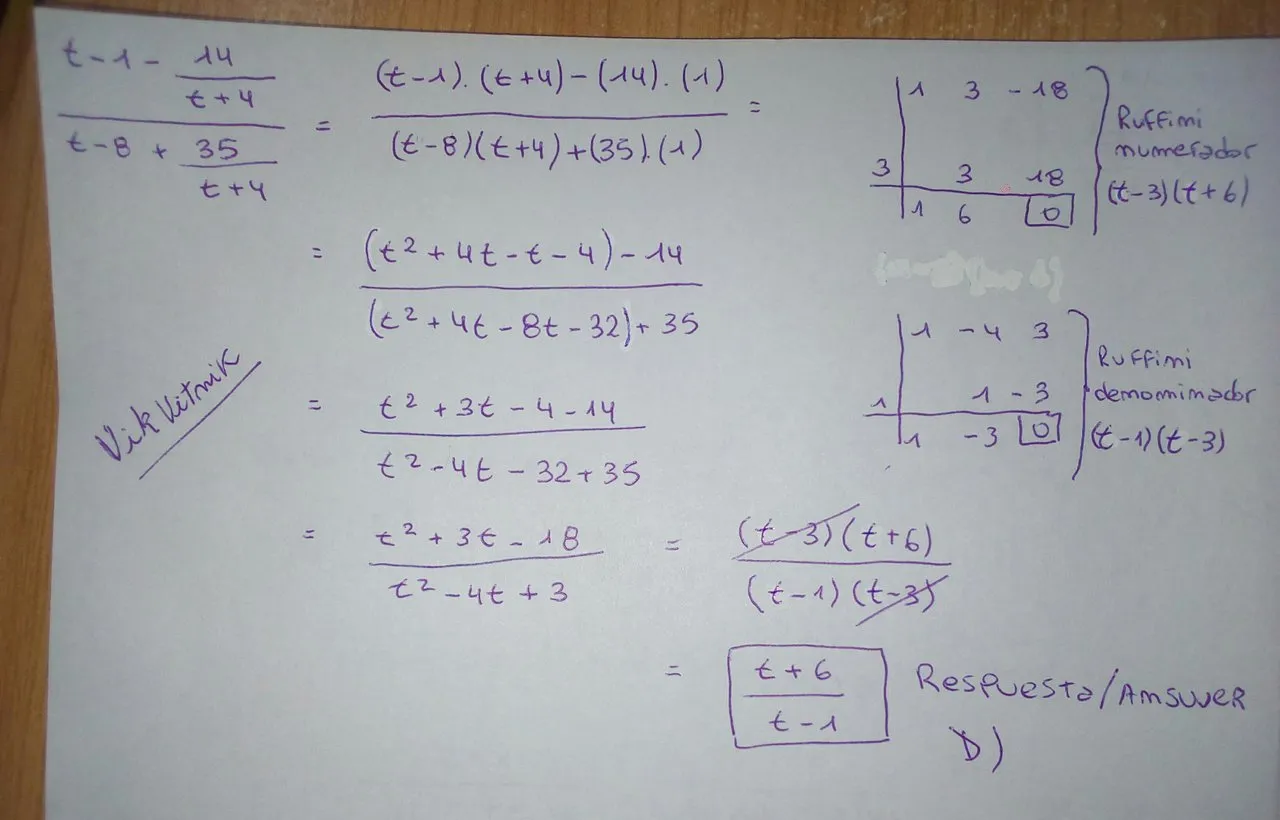 t-1- 14/(t+4) / t-8 + 35/(t+4) = (t-1).(t+4)-(14).(1) / (t-8)(t+4)+(35).(1) =
= (t²+4t-t-4)-14 / (t²+4t-8t-32)+35
= t²+3t-4-14 / t²-4t-32+35
= t²+3t-18 / t²-4t+3 = (t-3)(t+6) / (t-1)(t-3)
= t+6 / t-1 Respuesta/Amsuver
D)
1 3 -18
3 3 18
1 6 0
Ruffimi
numerador
(t-3)(t+6)
1 -4 3
1 1 -3
1 -3 0
Ruffimi
demomimador
(t-1)(t-3)
Vik Vitnik